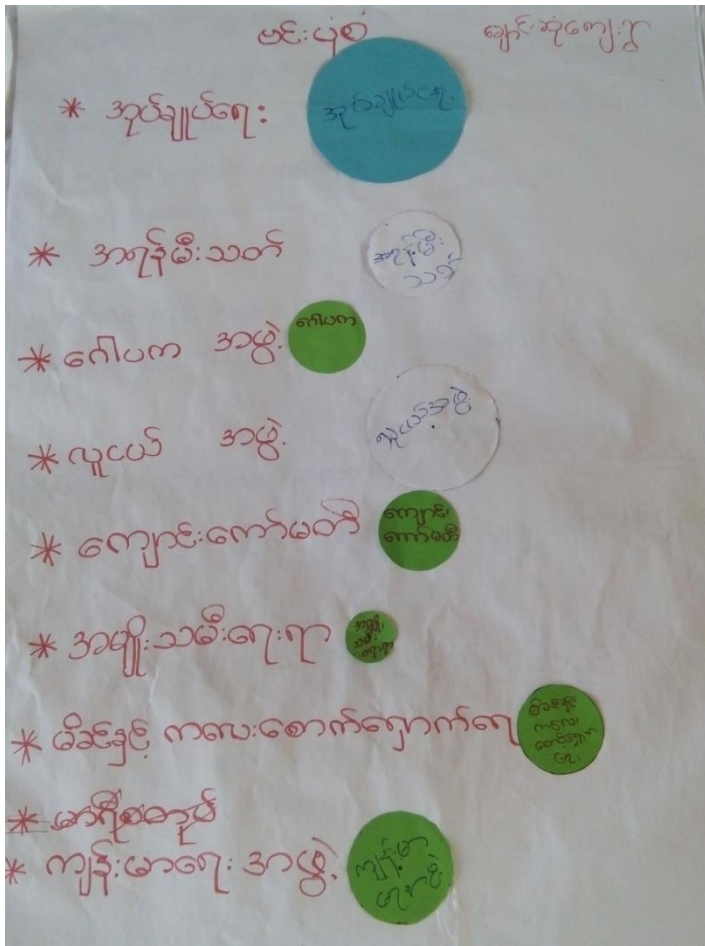 ဗင်းပုံစံ ချောင်းဆုံကျေးရွာ
* အုပ်ချုပ်ရေး အုပ်ချုပ်ရေး
* အရန်မီးသတ် အရန်မီး
သတ်
* ဂေါပက အဖွဲ့ ဂေါပက
* လူငယ် အဖွဲ့ လူငယ်အဖွဲ့
* ကျောင်းကော်မတီ ကျောင်း
ကော်မတီ
* အမျိုးသမီးရေးရာ အမျိုး
သမီး
ရေးရာ
* မိခင်နှင့် ကလေးစောက်ရှောက်ရေ မိခင်နှင့်
ကလေး
* ကျန်းမာရေး အဖွဲ့ ကျန်းမာ
ရေးအဖွဲ့